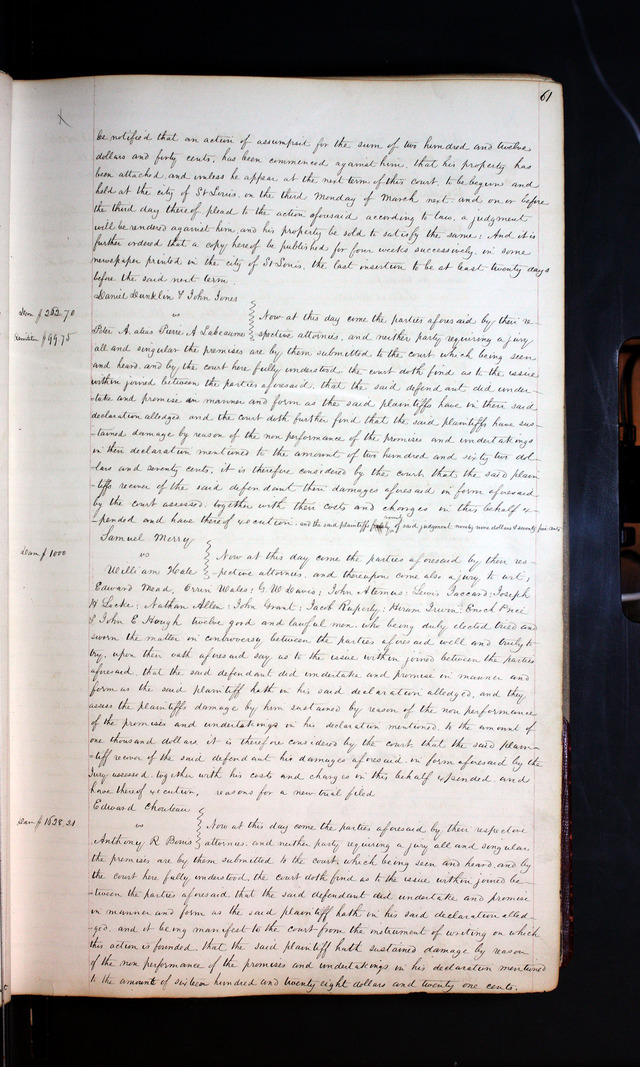 61
be notified that an action of assumpsit for the sum of two hundred and twelve
dollars and forty cents, has been commenced against him, that his property has
been attached, and unless he appear at the next term of this court, to be begun and
held at the city of St Louis, on the third Monday of March next and on or before
the third day thereof plead to the action aforesaid according to law, a judgment
will be rendered against him, and his property be sold to satisfy the same; And it is
further ordered that a copy hereof be published for four weeks successively, in some
newspaper printed in the city of St Louis, the last insertion to be at least twenty days
before the said next term.
Daniel Dunklin & John Jones
Dam $262.70
vs
Now at this day come the parties aforesaid by their re-
Remittitur $99.75
Peter A. alias Pierre A Labeaume
-spective attornies, and neither party requiring a jury
all and singular the premises are by them submitted to the court which being seen
and heard, and by the court here fully understood, the court doth find as to the issue
within joined between the parties aforesaid, that the said defendant did under-
-take and promise in manner and form as the said plaintiffs have in their said
declaration alledged and the court doth further find that the said plaintiffs have sus-
-tained damage by reason of the non performance of the promises and undertakings
in their declaration mentioned to the amount of two hundred and sixty two dol-
-lars and seventy cents, it is therefore considered by the court that the said plain-
-tiffs recover of the said defendant their damages aforesaid in form aforesaid
by the court assessed, together with their costs and charges in this behalf ex-
-pended and have thereof execution. and the said plaintiffs remit of said judgment ninety nine dollars & seventy five cents
Samuel Merry
Dam $1000
vs
Now at this day come the parties aforesaid by their res-
William Hale
-pective attornies, and thereupon come also a jury to wit,
Edward Mead, Wales; G. W Davis; John; Lewis; Joseph
H Locke; Nathan Allen; John Grant; Jacob; Hiram; Enoch Price
& John E Hough twelve good and lawful men, who being duly elected tried and
sworn the matter in controversy between the parties aforesaid well and truly to
try, upon their oath aforesaid say as to the issue within joined between the parties
aforesaid, that the said defendant did undertake and promise in manner and
form as the said plaintiff hath in his said declaration alledged, and they
assess the plaintiffs damage by him sustained by reason of the non performance
of the promises and undertakings in his declaration mentioned, to the amount of
one thousand dollars, it is therefore considered by the court, that the said plain-
-tiff recover of the said defendant his damages aforesaid in form aforesaid by the
Jury assessed, together with his costs and charges in this behalf expended, and
have thereof execution, reasons for a new trial filed
Edward Chouteau
Dam $1628.21
vs
Now at this day come the parties aforesaid by their respective
Anthony R Bouis
attornies, and neither party requiring a jury all and singular
the premises are by them submitted to the court, which being seen and heard, and by
the court here fully understood, the court doth find as to the issue within joined be-
-tween the parties aforesaid that the said defendant did undertake and promise
in manner and form as the said plaintiff hath in his said declaration alled-
-ged, and it being manifest to the court from the instrument of writing on which
this action is founded, that the said plaintiff hath sustained damage by reason
of the non performance of the promises and undertakings in his declaration mentioned
to the amount of sixteen hundred and twenty eight dollars and twenty one cents.